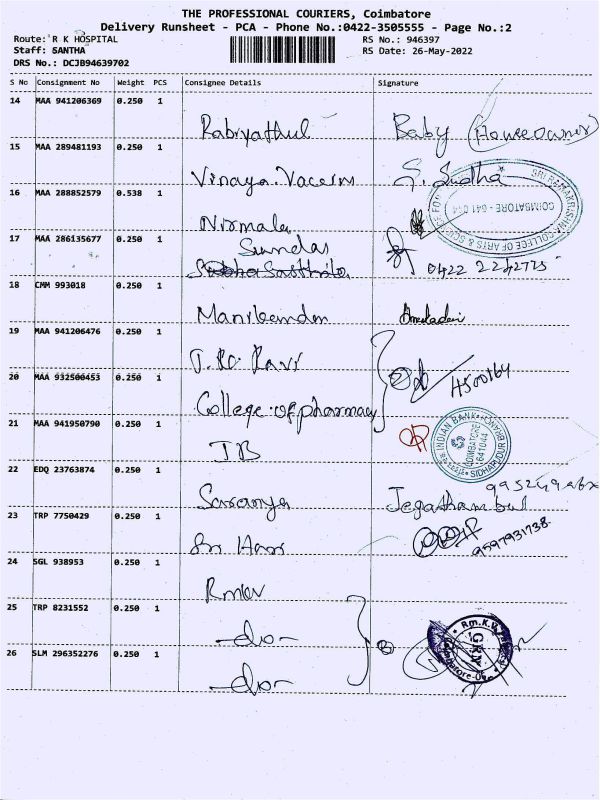 THE PROFESSIONAL COURIERS, Coimbatore
Delivery Runsheet - PCA - Phone No.:0422-3505555 - Page No.:2
Route: R K HOSPITAL RS No.: 946397
Staff: SANTHA RS Date: 26-May-2022
DRS No.: DCJB94639702
S No Consignment No Weight PCS Consignee Details Signature
14 MAA 941206369 0.250 1
Baby (House owner)
15 MAA 289481193 0.250 1
Vinaya. G. Sudha
16 MAA 288852579 0.538 1
SRI RAMAKRISHNA COLLEGE OF ARTS &
COIMBATORE - 641 044
Nirmala
17 MAA 286135677 0.250 1
Sundar
0422
18 CMM 993018 0.250 1
19 MAA 941206476 0.250 1
Ravi
20 MAA 932500453 0.250 1
College of pharmacy
21 MAA 941950790 0.250 1
INDIAN BANK
COIMBATORE
641044
IB
22 EDQ 23763874 0.250 1
Saranya
23 TRP 7750429 0.250 1
9597931738
Sri Hari
24 SGL 938953 0.250 1
Rmkv
25 TRP 8231552 0.250 1
-do-
26 SLM 296352276 0.250 1
-do-